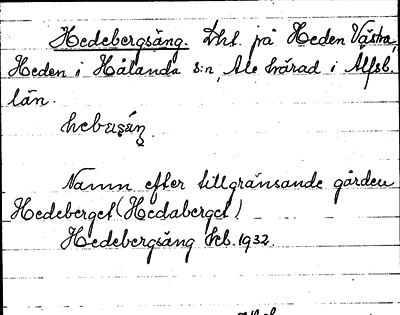 Hedebergsäng. Dht. på Heden Västra,
Heden i Hålanda s:n, Ale härad i Älfsb.
län.
Namn efter tillgränsande gården
Hedeberget (Hedaberget)
Hedebergsäng Jeb. 1932.